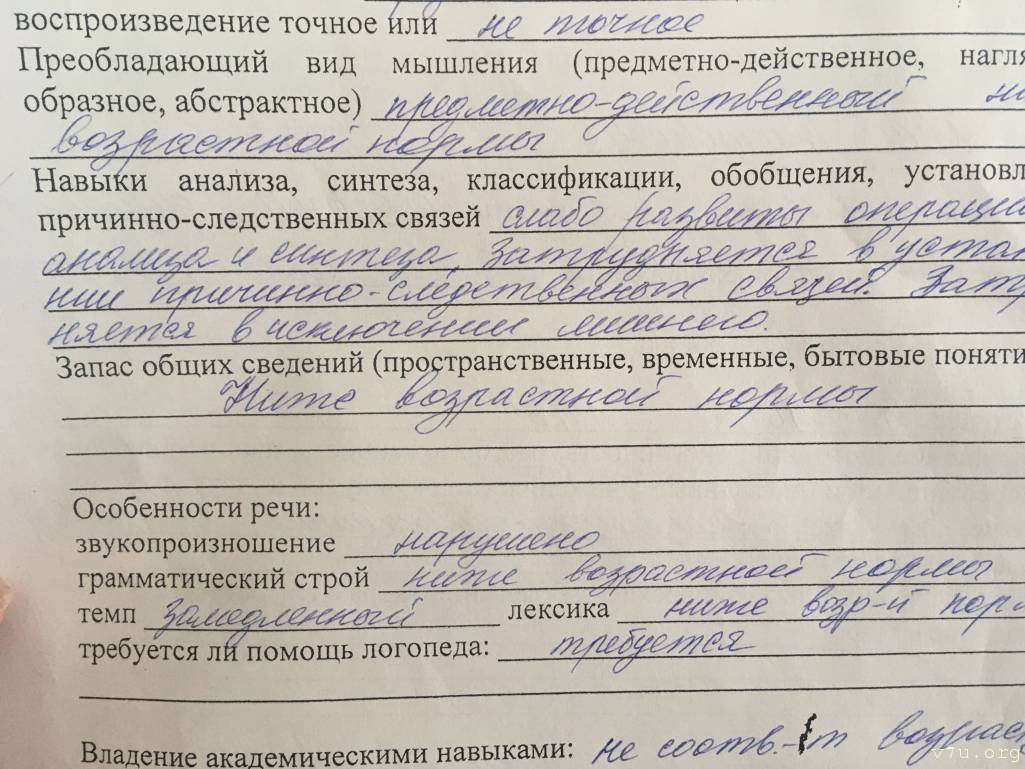 воспроизведение точное или не точное
Преобладающий вид мышления (предметно-действенное, нагля
образное, абстрактное) предметно-действенный
возрастной нормы
Навыки анализа, синтеза, классификации, обобщения, установл
причинно-следственных связей слабо развиты операци
анализа и синтеза, затрудняется в устан
нии причинно-следственных связей. Затр
няется в исключении лишнего.
Запас общих сведений (пространственные, временные, бытовые поняти
Ниже возрастной нормы
Особенности речи:
звукопроизношение нарушено
грамматический строй ниже возрастной нормы
темп замедленный лексика ниже возр-й нор
требуется ли помощь логопеда: требуется
Владение академическими навыками: не соотв.-т возрас
v7u.org